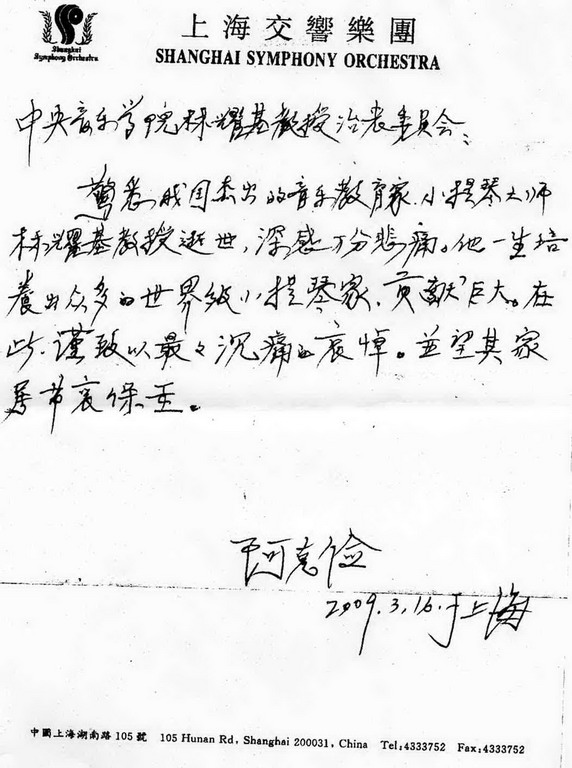 Shanghai
Symphony Orchestra
上海交響樂團
SHANGHAI SYMPHONY ORCHESTRA
中央音乐学院林耀基教授治丧委員会:
驚悉我国杰出的音乐教育家、小提琴大师
林耀基教授逝世,深感万分悲痛。他一生培
養出众多的世界级小提琴家,貢献巨大。在
此,谨致以最最沉痛的哀悼。並望其家
属节哀保重。
2009.3.16.于上海
中國上海湖南路105號 105 Hunan Rd, Shanghai 200031, China Tel:4333752 Fax:4333752